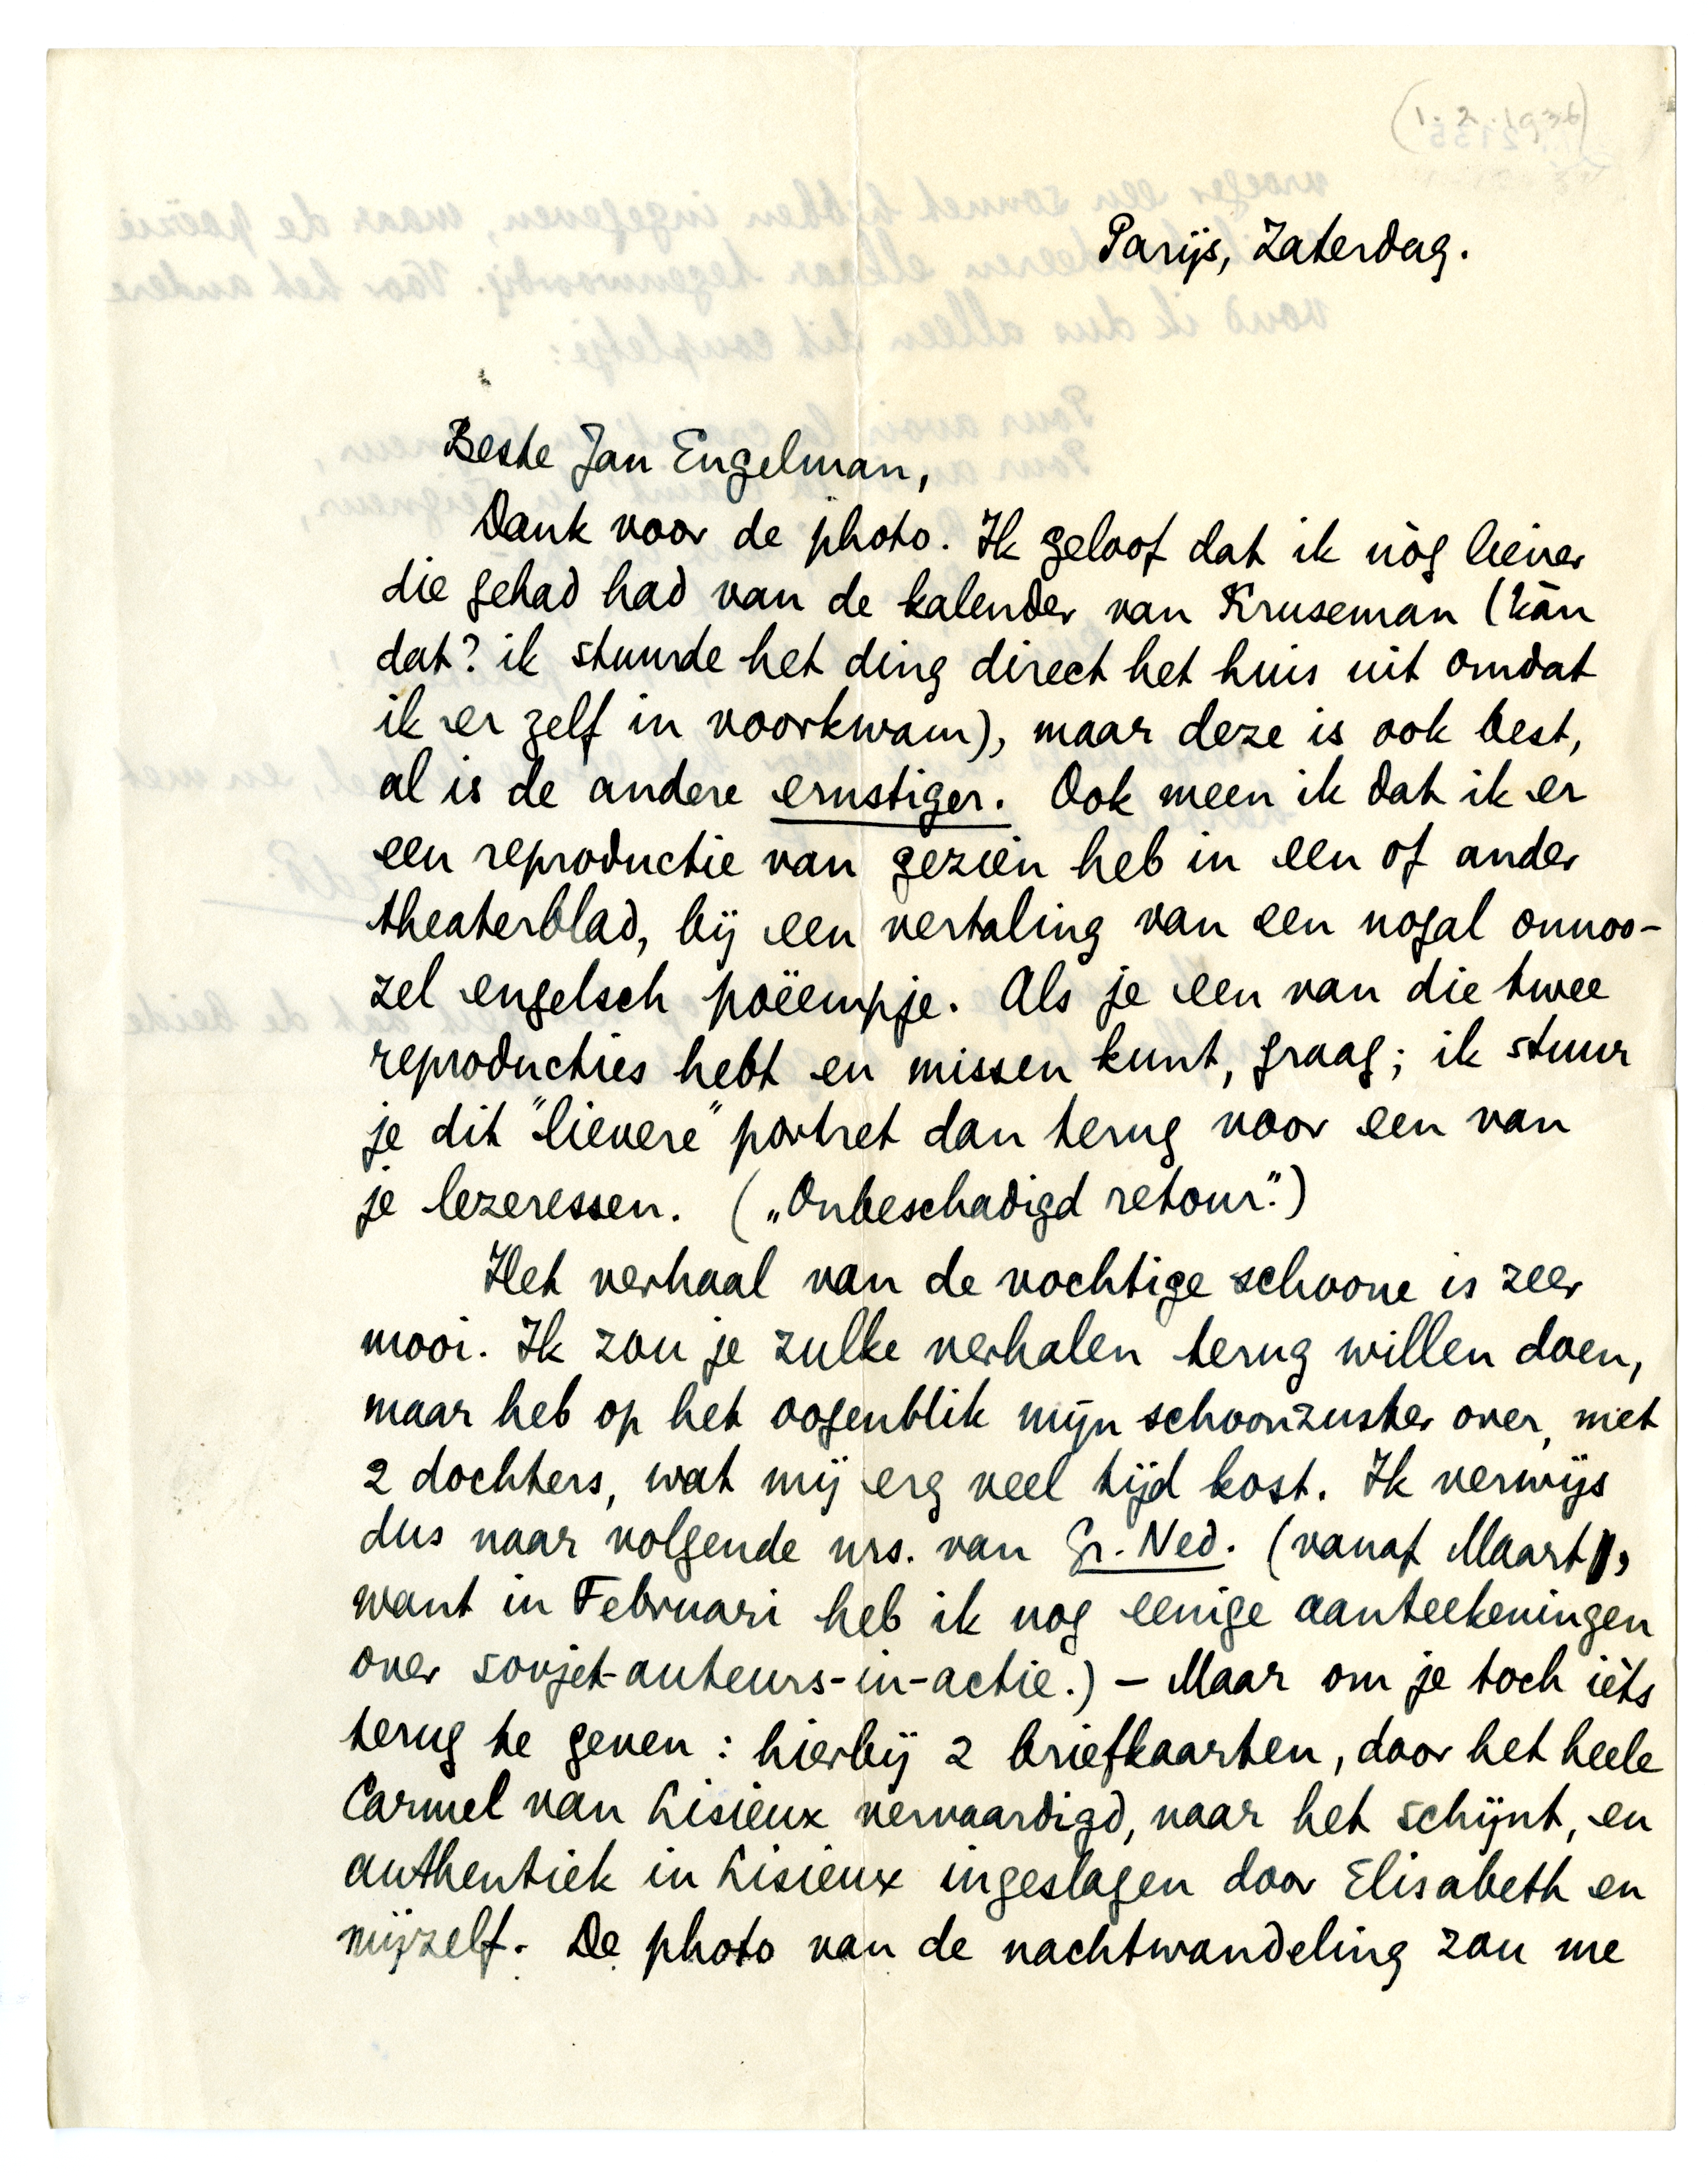 (1.2.1936)
Parijs, Zaterdag.
Beste Jan Engelman,
Dank voor de photo. Ik geloof dat ik nòg liever
die gehad had van de kalender van Kruseman (kàn
dat? ik stuurde het ding direct het huis uit omdat
ik er zelf in voorkwam), maar deze is ook best,
al is de andere ernstiger. Ook meen ik dat ik er
een reproductie van gezien heb in een of ander
theaterblad, bij een vertaling van een nogal onnoo-
zel engelsch poëempje. Als je een van die twee
reproducties hebt en missen kunt, graag; ik stuur
je dit "lievere" portret dan terug voor een van
je lezeressen. („Onbeschadigd retour.")
Het verhaal van de vochtige schoone is zeer
mooi. Ik zou je zulke verhalen terug willen doen,
maar heb op het oogenblik mijn schoonzuster over, met
2 dochters, wat mij erg veel tijd kost. Ik verwijs
dus naar volgende nrs. van Gr. Ned. (vanaf Maart,
want in Februari heb ik nog eenige aanteekeningen
over sovjet-auteurs-in-actie.) – Maar om je toch ièts
terug te geven: hierbij 2 briefkaarten, door het heele
Carmel van Lisieux vervaardigd, naar het schijnt, en
authentiek in Lisieux ingeslagen door Elisabeth en
mijzelf. De photo van de nachtwandeling zou me